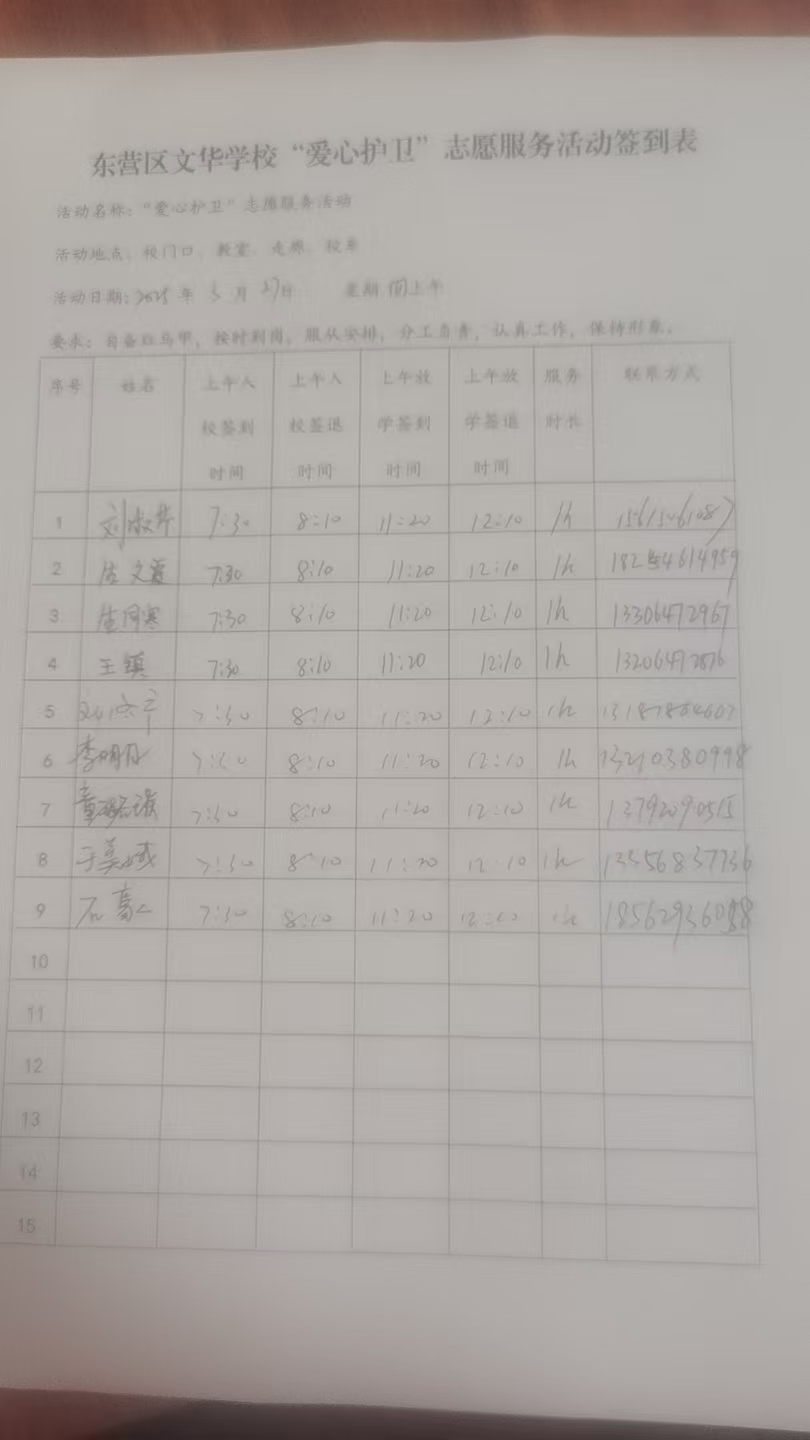 东营区文华学校“爱心护卫”志愿服务活动签到表
活动名称:“爱心护卫”志愿服务活动
活动地点:校门口、教室、走廊、校车
活动日期:2025年 3月 27日 星期四上午
要求:自备红马甲,按时到岗,服从安排,分工负责,认真工作,保持形象。
序号 姓名 上午入校签到时间 上午入校签退时间 上午放学签到时间 上午放学签退时间 服务时长 联系方式
1 刘淑华 7:30 8:10 11:20 12:10 1h 15615461087
2 7:30 8:10 11:20 12:10 1h
3 7:30 8:10 11:20 12:10 1h 13306472967
4 王镇 7:30 8:10 11:20 12:10 1h 13206472876
5 7:30 8:10 11:20 12:10 1h
6 李明月 7:30 8:10 11:20 12:10 1h 13210380998
7 7:30 8:10 11:20 12:10 1h 13792090515
8 7:30 8:10 11:20 12:10 1h 13356837736
9 7:30 8:10 11:20 12:10 1h
10
11
12
13
14
15